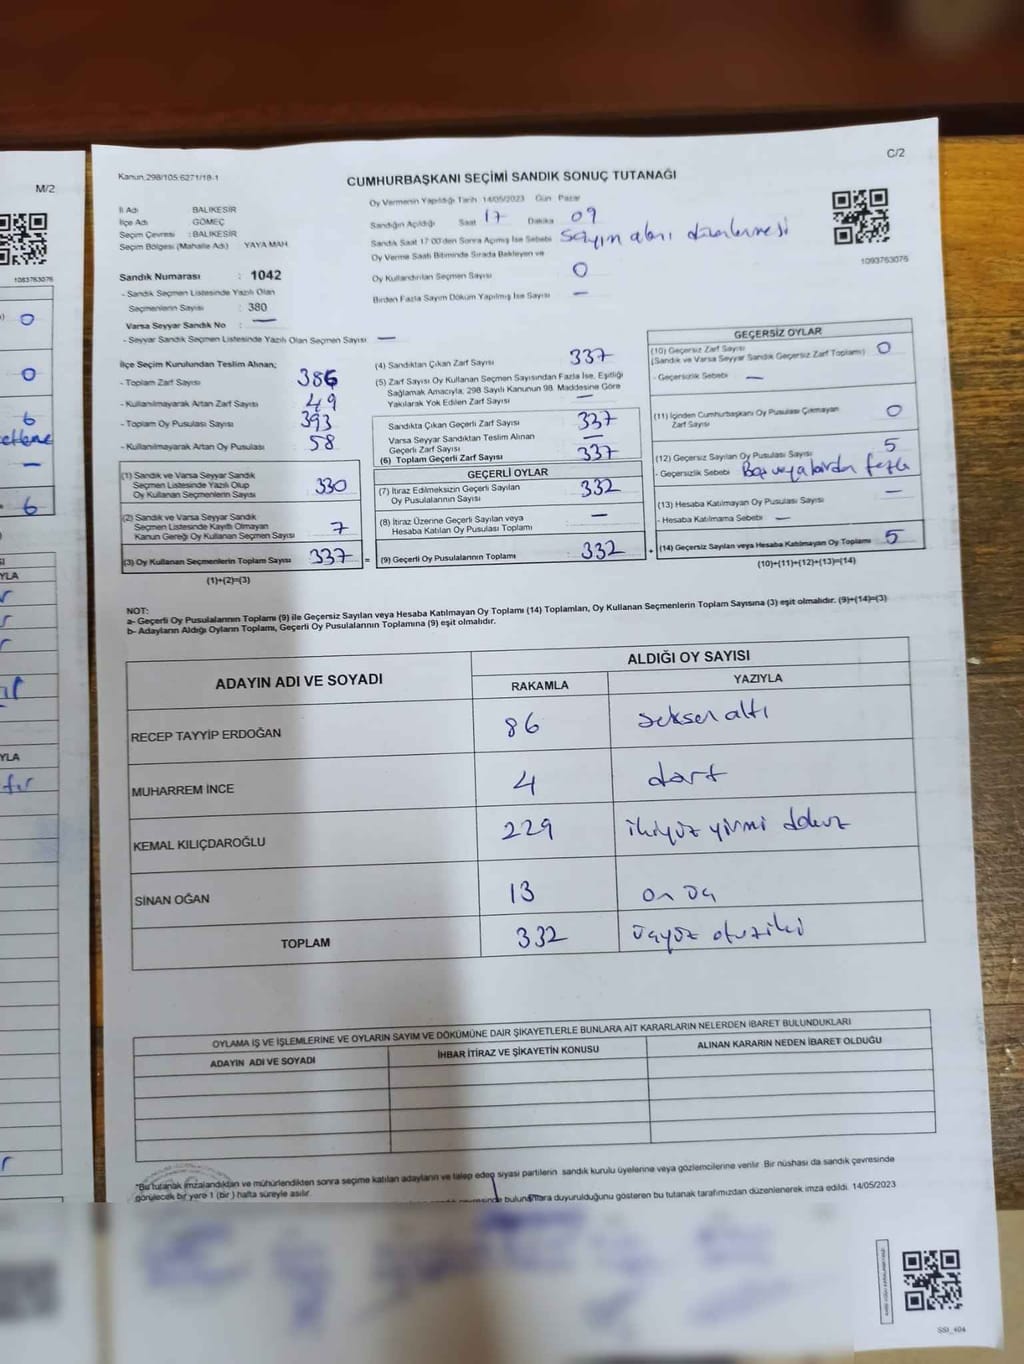 M/2
1083763076
0
0
6
6
YLA
YLA
C/2
Kanun 298/105.6271/18-1
CUMHURBAŞKANI SEÇİMİ SANDIK SONUÇ TUTANAĞI
İl Adı BALIKESİR
İlçe Adı GÖMEÇ
Seçim Çevresi : BALIKESİR
Seçim Bölgesi (Mahalle Adı) YAYA MAH.
Oy Vermenin Yapıldığı Tarih 14/05/2023 Gün Pazar
Sandığın Açıldığı Saat 17 Dakika 09
Sandık Saat 17:00'den Sonra Açılmış İse Sebebi sayım alanı düzenlemesi
Oy Verme Saati Bitiminde Sırada Bekleyen ve
Oy Kullandırılan Seçmen Sayısı 0
Birden Fazla Sayım Döküm Yapılmış İse Sayısı —
1093763076
Sandık Numarası : 1042
- Sandık Seçmen Listesinde Yazılı Olan
Seçmenlerin Sayısı : 380
Varsa Seyyar Sandık No : —
- Seyyar Sandık Seçmen Listesinde Yazılı Olan Seçmen Sayısı —
İlçe Seçim Kurulundan Teslim Alınan;
- Toplam Zarf Sayısı 386
- Kullanılmayarak Artan Zarf Sayısı 49
- Toplam Oy Pusulası Sayısı 393
- Kullanılmayarak Artan Oy Pusulası 58
(1) Sandık ve Varsa Seyyar Sandık
Seçmen Listesinde Yazılı Olup
Oy Kullanan Seçmenlerin Sayısı 330
(2) Sandık ve Varsa Seyyar Sandık
Seçmen Listesinde Kayıtlı Olmayan
Kanun Gereği Oy Kullanan Seçmen Sayısı 7
(3) Oy Kullanan Seçmenlerin Toplam Sayısı 337 =
(1)+(2)=(3)
(4) Sandıktan Çıkan Zarf Sayısı 337
(5) Zarf Sayısı Oy Kullanan Seçmen Sayısından Fazla İse, Eşitliği
Sağlamak Amacıyla, 298 Sayılı Kanunun 98. Maddesine Göre
Yakılarak Yok Edilen Zarf Sayısı —
Sandıkta Çıkan Geçerli Zarf Sayısı 337
Varsa Seyyar Sandıktan Teslim Alınan
Geçerli Zarf Sayısı —
(6) Toplam Geçerli Zarf Sayısı 337
GEÇERLİ OYLAR
(7) İtiraz Edilmeksizin Geçerli Sayılan
Oy Pusulalarının Sayısı 332
(8) İtiraz Üzerine Geçerli Sayılan veya
Hesaba Katılan Oy Pusulası Toplamı —
(9) Geçerli Oy Pusulalarının Toplamı : 332 +
GEÇERSİZ OYLAR
(10) Geçersiz Zarf Sayısı
(Sandık ve Varsa Seyyar Sandık Geçersiz Zarf Toplamı) 0
- Geçersizlik Sebebi —
(11) İçinden Cumhurbaşkanı Oy Pusulası Çıkmayan
Zarf Sayısı 0
(12) Geçersiz Sayılan Oy Pusulası Sayısı 5
- Geçersizlik Sebebi Boş veya birden fazla
(13) Hesaba Katılmayan Oy Pusulası Sayısı —
- Hesaba Katılmama Sebebi —
(14) Geçersiz Sayılan veya Hesaba Katılmayan Oy Toplamı 5
(10)+(11)+(12)+(13)=(14)
NOT:
a- Geçerli Oy Pusulalarının Toplamı (9) ile Geçersiz Sayılan veya Hesaba Katılmayan Oy Toplamı (14) Toplamları, Oy Kullanan Seçmenlerin Toplam Sayısına (3) eşit olmalıdır. (9)+(14)=(3)
b- Adayların Aldığı Oyların Toplamı, Geçerli Oy Pusulalarının Toplamına (9) eşit olmalıdır.
ADAYIN ADI VE SOYADI ALDIĞI OY SAYISI
RAKAMLA YAZIYLA
RECEP TAYYİP ERDOĞAN 86 seksen altı
MUHARREM İNCE 4 dört
KEMAL KILIÇDAROĞLU 229 ikiyüz yirmi dokuz
SİNAN OĞAN 13 on üç
TOPLAM 332 üçyüz otuz iki
OYLAMA İŞ VE İŞLEMLERİNE VE OYLARIN SAYIM VE DÖKÜMÜNE DAİR ŞİKAYETLERLE BUNLARA AİT KARARLARIN NELERDEN İBARET BULUNDUKLARI
ADAYIN ADI VE SOYADI İHBAR İTİRAZ VE ŞİKAYETİN KONUSU ALINAN KARARIN NEDEN İBARET OLDUĞU
"Bu tutanak imzalandıktan ve mühürlendikten sonra seçime katılan adayların ve talep eden siyasi partilerin sandık kurulu üyelerine veya gözlemcilerine verilir. Bir nüshası da sandık çevresinde
görülecek bir yere 1 (bir) hafta süreyle asılır.
bulunanlara duyurulduğunu gösteren bu tutanak tarafımızdan düzenlenerek imza edildi. 14/05/2023
SSI_404